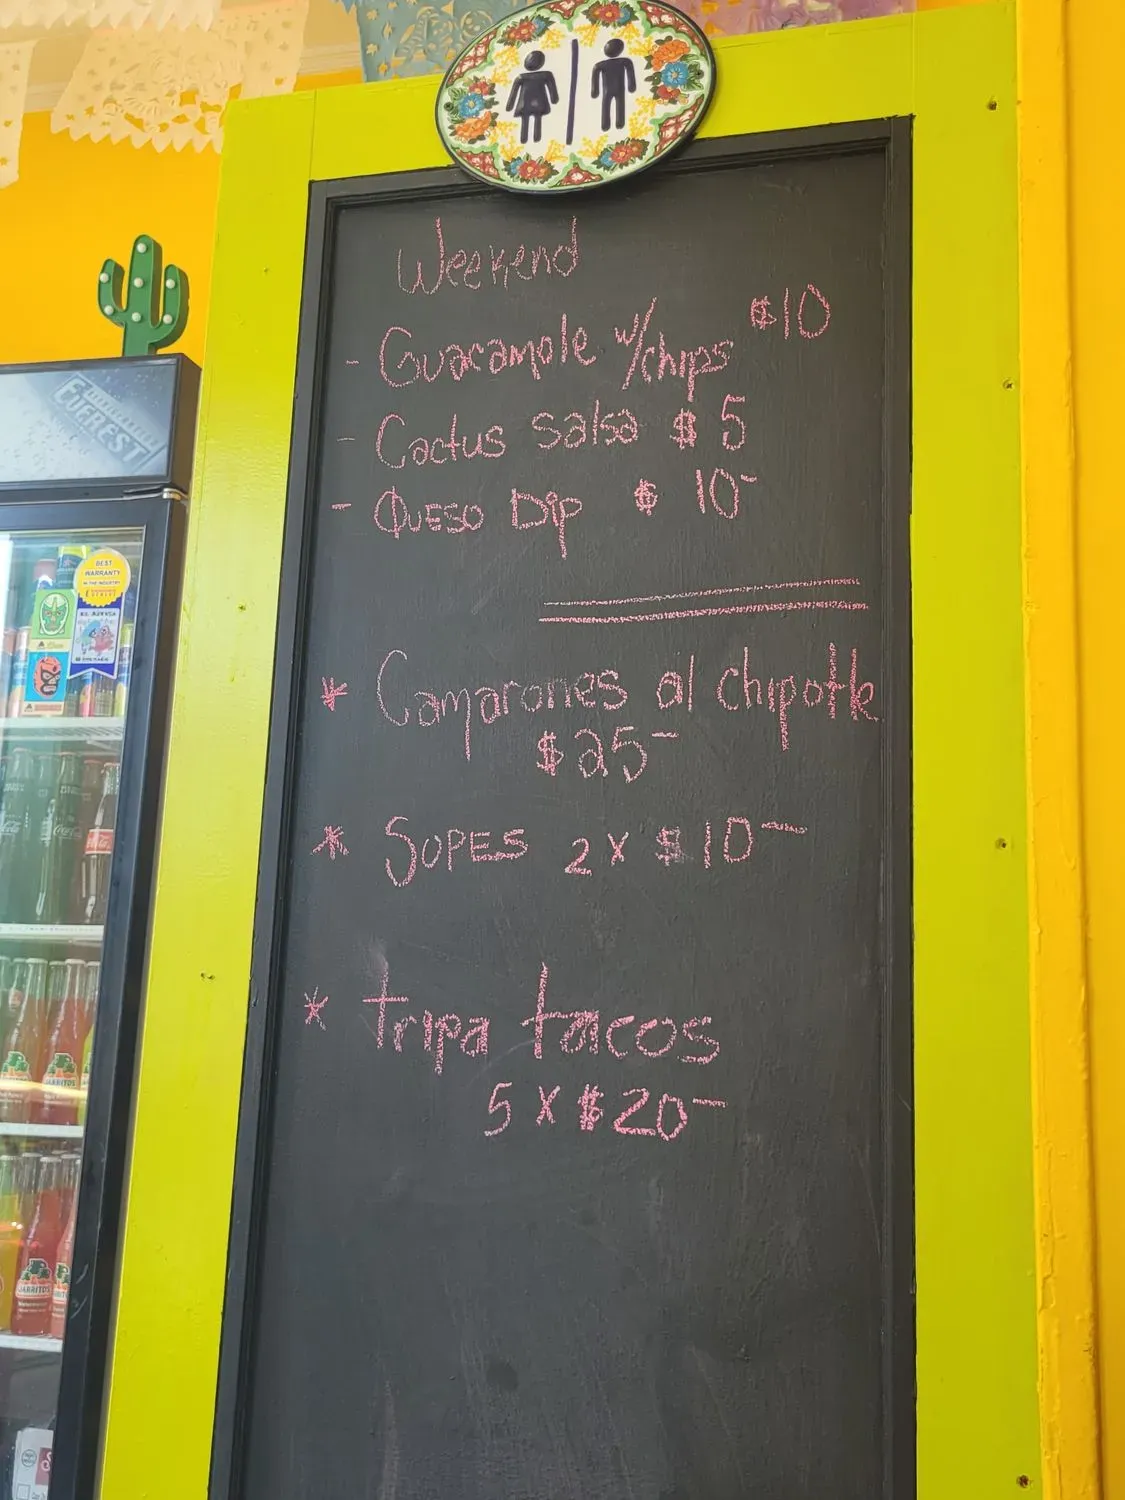 Weekend
- Guacamole w/chips $10
- Cactus Salsa $ 5
- QUESO Dip $ 10-
* Camarones al chipotle
$25-
* SOPES 2 X $10-
* Tripa tacos
5 X $20-
EVEREST
BEST
WARRANTY
IN THE INDUSTRY
Coca-Cola
JARRITOS
JARRITOS